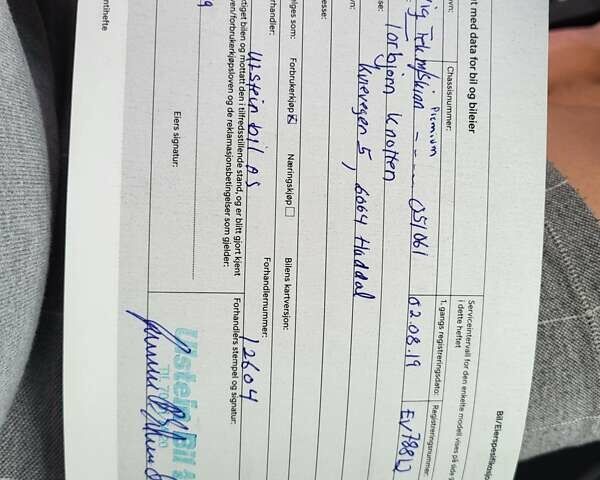 Bil/Eierspesifikasjo
t med data for bil og bileier
Serviceintervall for den enkelte modell vises på side
i dette heftet
vn:
Chassisnummer:
1. gangs registreringsdato:
Registreringsnummer:
Premium
051061
02.08.19
Torbjørn Knotten
Kvievegen 5, 6064 Haddal
esse:
elges som:
Forbrukerkjøp
Næringskjøp
Bilens kartversjon:
Forhandlernummer:
Ulstein bil AS
12604
tiget bilen og mottatt den i tilfredsstillende stand, og er blitt gjort kjent
ven/forbrukerkjøpsloven og de reklamasjonsbetingelser som gjelder:
Forhandlers stempel og signatur:
Eiers signatur:
Ulstein Bil
antihefte